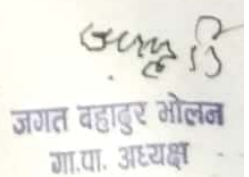 जगत वहादुर भोलन
गा.पा. अध्यक्ष